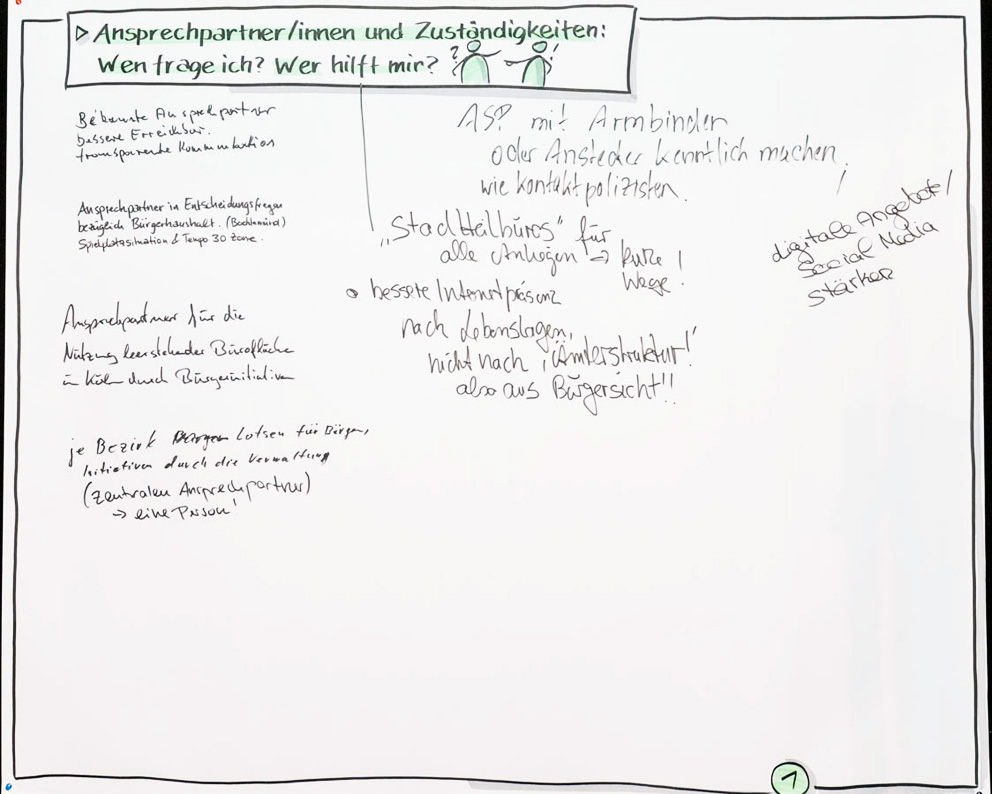 ▷ Ansprechpartner/innen und Zuständigkeiten:
Wen frage ich? Wer hilft mir? ? !
Bekannte Ansprechpartner
bessere Erreichbar.
transparente Kommunikation
Ansprechpartner in Entscheidungsfragen
bezüglich Bürgerhaushalt. (Bocklemünd)
Spielplatzsituation & Tempo 30 Zone.
Ansprechpartner für die
Nutzung leerstehender Bürofläche
in Köln durch Bürgerinitiativen
je Bezirk Lotsen für Bürger,
Initiativen durch die Verwaltung
(zentralen Ansprechpartner)
→ eine Person!
ASP mit Armbinden
oder Anstecker kenntlich machen!
wie Kontaktpolizisten.
„Stadtteilbüros" für
alle Anliegen → kurze
Wege!
• bessere Internetpräsenz
nach Lebenslagen,
nicht nach „Ämterstruktur!"
also aus Bürgersicht!!
digitale Angebote/
Social Media
stärken
1